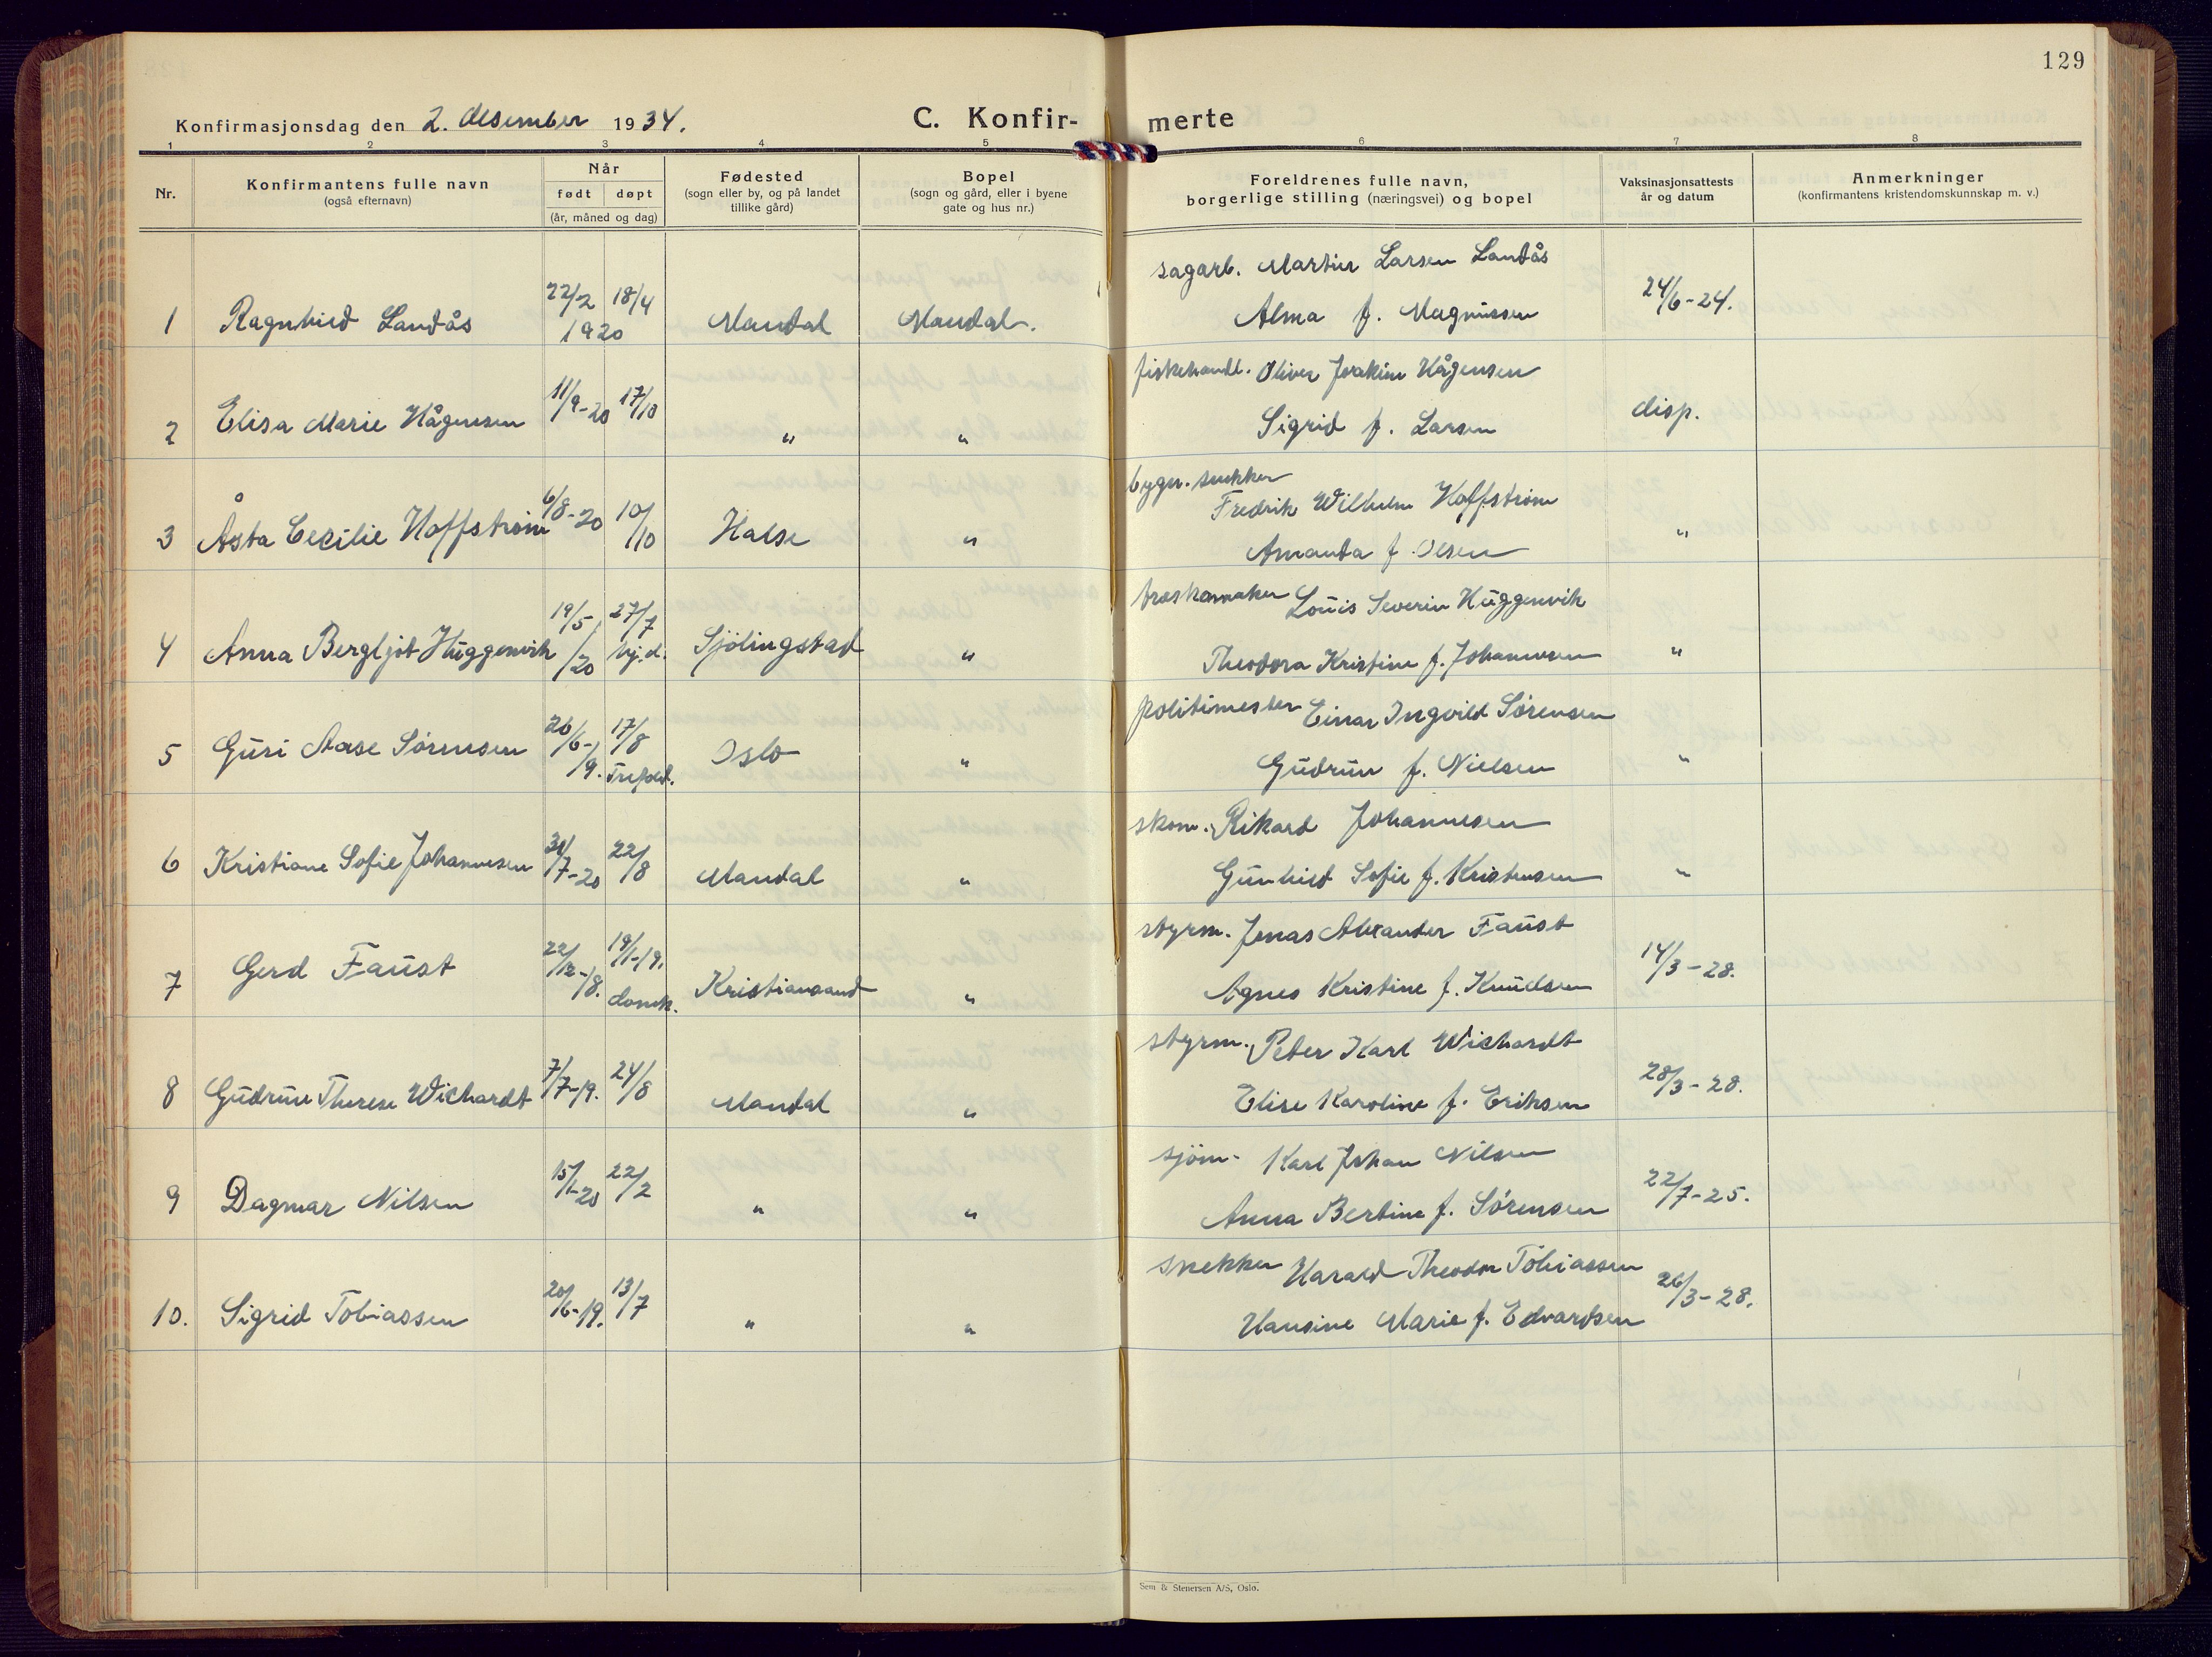 129
Konfirmasjonsdag den 2. desember 1934.
C. Konfir- merte
1 2 3 4 5 6 7 8
Nr.
Konfirmantens fulle navn
(også efternavn)
Når
født døpt
(år, måned og dag)
Fødested
(sogn eller by, og på landet
tillike gård)
Bopel
(sogn og gård, eller i byene
gate og hus nr.)
Foreldrenes fulle navn,
borgerlige stilling (næringsvei) og bopel
Vaksinasjonsattests
år og datum
Anmerkninger
(konfirmantens kristendomskunnskap m. v.)
sagarb. Martin Larsen Landås
1 Ragnhild Landås 22/2 1920 18/4 Mandal Mandal. Alma f. Magnussen 24/6-24.
fiskehandl. Oliver Joakim Hågensen
2 Elisa Marie Hågensen 11/9-20 17/10 " " Sigrid f. Larsen disp.
bygn. snekker
Fredrik Wilhelm Hoffstrøm
3 Åsta Cecilie Hoffstrøm 6/8-20 10/10 Halse " Amanda f. Olsen "
treskomaker Louis Severin Huggenvik
4 Anna Bergljot Huggenvik 19/5/20 27/7 hj.d. Sjölingstad " Theodora Kristine f. Johannesen "
politimester Einar Ingvild Sørensen
5 Guri Aase Sørensen 26/6-19. 17/8 Trefold. Oslo " Gudrun f. Nielsen "
skom. Rikard Johannesen
6 Kristiane Sofie Johannesen 31/7-20 22/8 Mandal " Gunhild Sofie f. Kristensen "
styrm. Jonas Alexander Faust
7 Gerd Faust 22/12-18. 19/1-19. domk. Kristiansand " Agnes Kristine f. Knudsen 14/3-28.
styrm. Peter Karl Wichardt
8 Gudrun Therese Wichardt 7/7-19. 24/8 Mandal " Elise Karoline f. Eriksen 28/3-28.
sjöm. Karl Johan Nilsen
9 Dagmar Nilsen 15/1-20 22/2 " " Anna Bertine f. Sørensen 22/7-25.
snekker Harald Theodor Tobiassen
10. Sigrid Tobiassen 20/6-19. 13/7 " " Hansine Marie f. Edvardsen 26/3-28.
Sem & Stenersen A/S, Oslo.